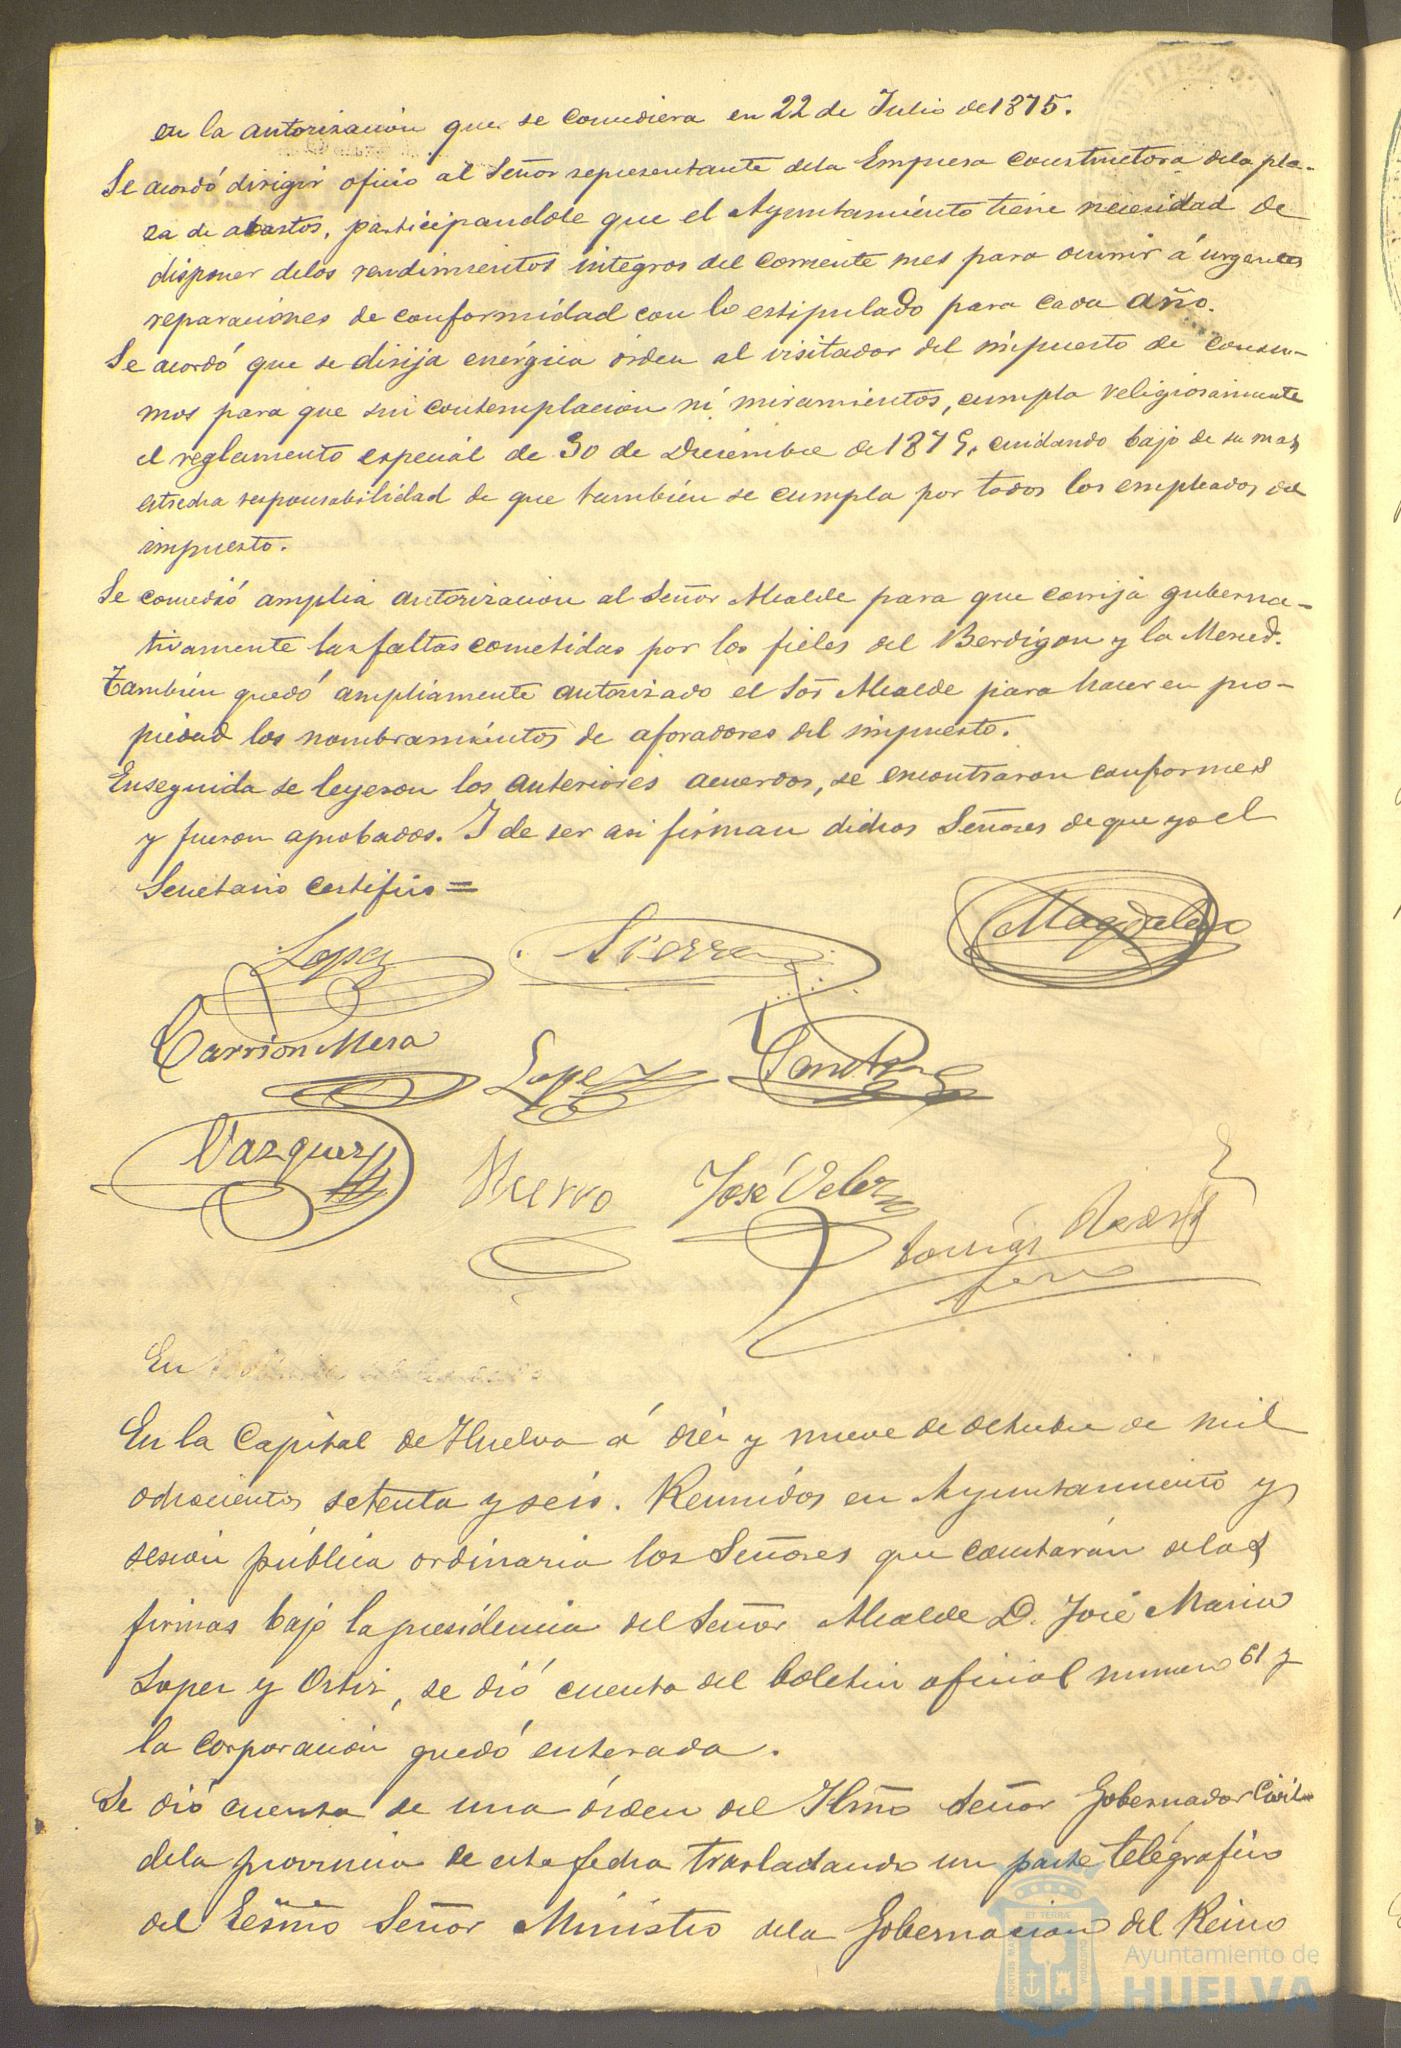 en la autorización que se concediera en 22 de Julio de 1875.
Se acordó dirigir oficio al Señor representante dela Empresa constructora dela pla-
za de abastos, participandole que el Ayuntamiento tiene necesidad de
disponer delos rendimientos integros del corriente mes para ocurrir á urgentes
reparaciones de conformidad con lo estipulado para cada año.
Se acordó que se dirija enérgica órden al visitador del impuesto de consu-
mos para que sin contemplacion ni miramientos, cumpla religiosamente
el reglamento especial de 30 de Diciembre de 1875, cuidando bajo de su mas
estrecha responsabilidad de que tambien se cumpla por todos los empleados del
impuesto.
Se concedió amplia autorizacion al Señor Alcalde para que corrija guberna-
tivamente las faltas cometidas por los fieles del Berdigon y la Merced.
También quedó ampliamente autorizado el Sor Alcalde para hacer en pro-
piedad los nombramientos de aforadores del impuesto.
Enseguida se leyeron los anteriores acuerdos, se encontraron conformes
y fueron aprobados. I de ser asi firman dichos Señores de que yo el
Secretario certifico =
Lopez Sierra Magdaleno
Carrion Mesa Lopez
Vazquez Hierro José Velez
Tomás
En
En la Capital de Huelva á diez y nueve de octubre de mil
ochocientos setenta y seis. Reunidos en Ayuntamiento y
sesion pública ordinaria los Señores que constarán delas
firmas bajo la presidencia del Señor Alcalde D. José Maria
Lopez y Ortiz, se dió cuenta del boletin oficial numero 61 y
la corporacion quedó enterada.
Se dió cuenta de una órden del Ylmo Señor Gobernador Civil
dela provincia de esta fecha trasladando un parte telégrafico
del Ecsmo Señor Ministro dela Gobernacion del Reino
Ayuntamiento de
HUELVA